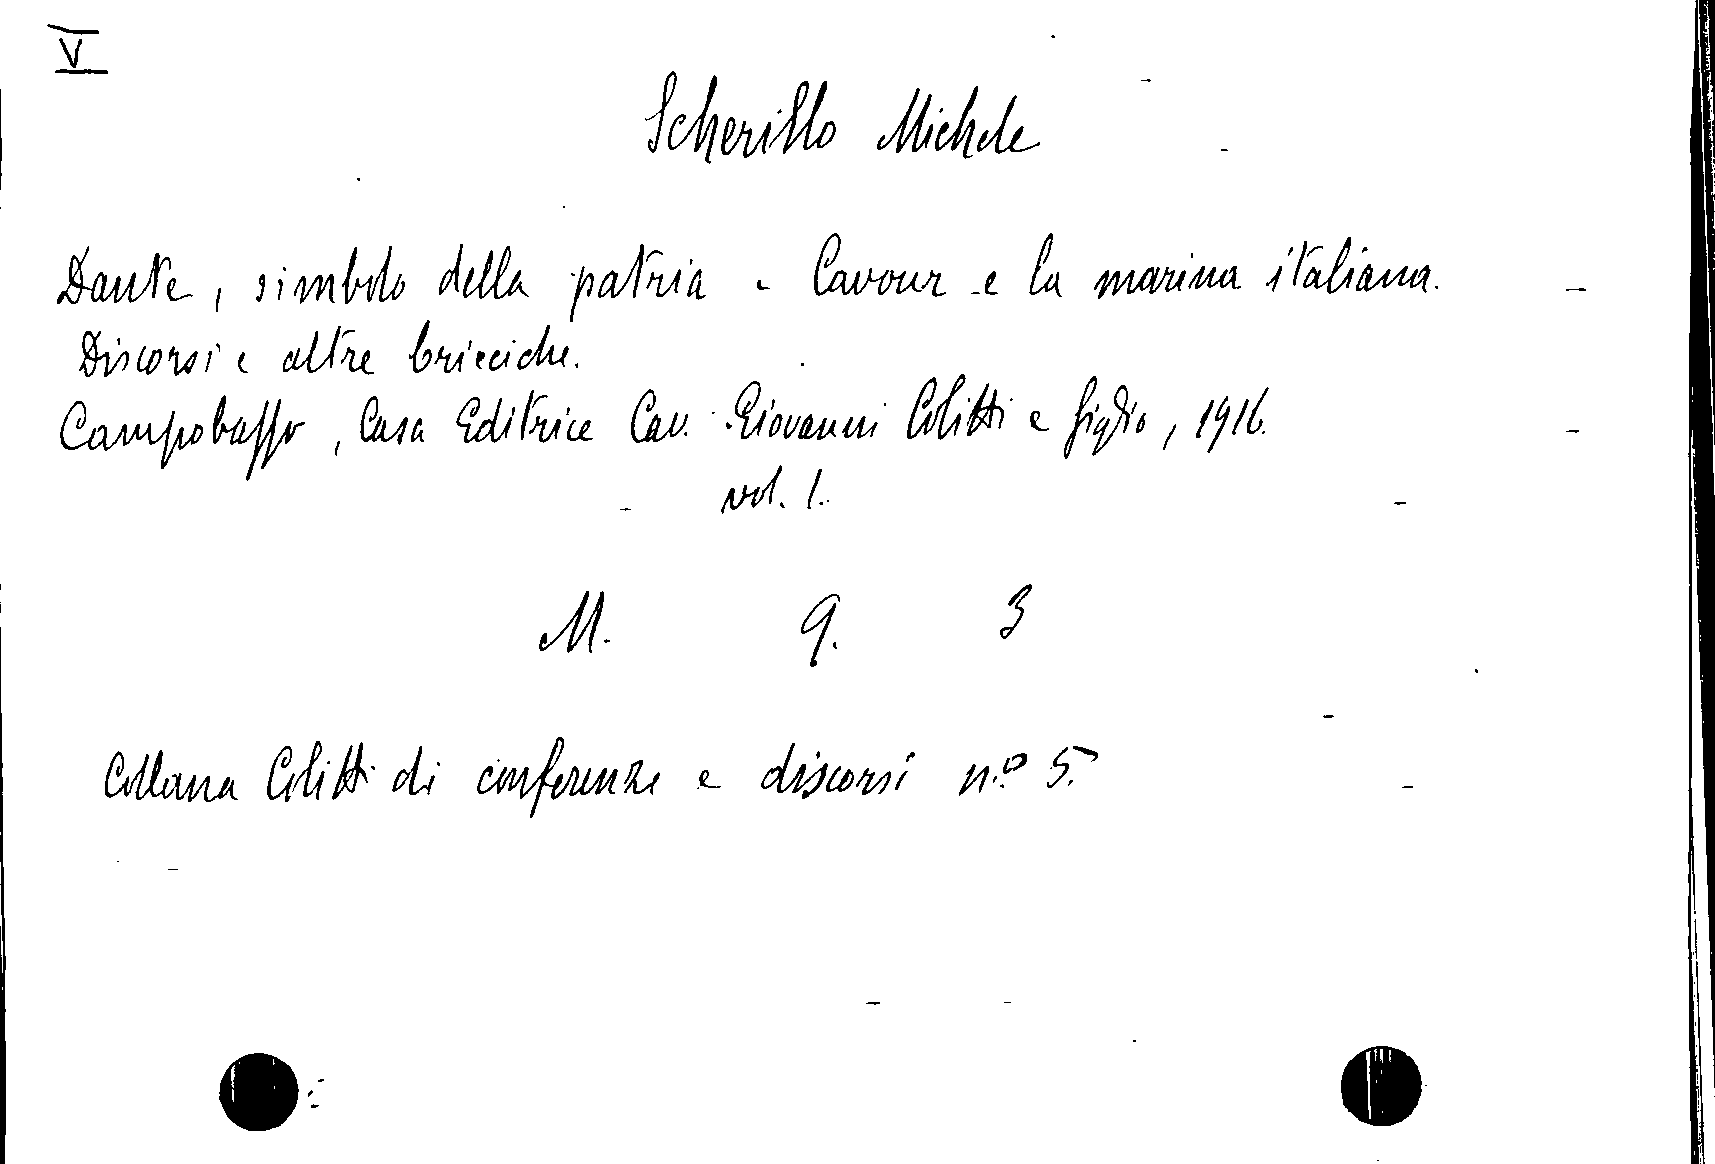 V
Scherillo Michele
Dante, simbolo della patria - Cavour e la marina italiana.
Discorsi e altre bricciche.
Campobasso, Casa Editrice Cav. Giovanni Colitti e figlio, 1916.
vol. 1.
M. 9. 3
Collana Colitti di conferenze e discorsi n.º 5.